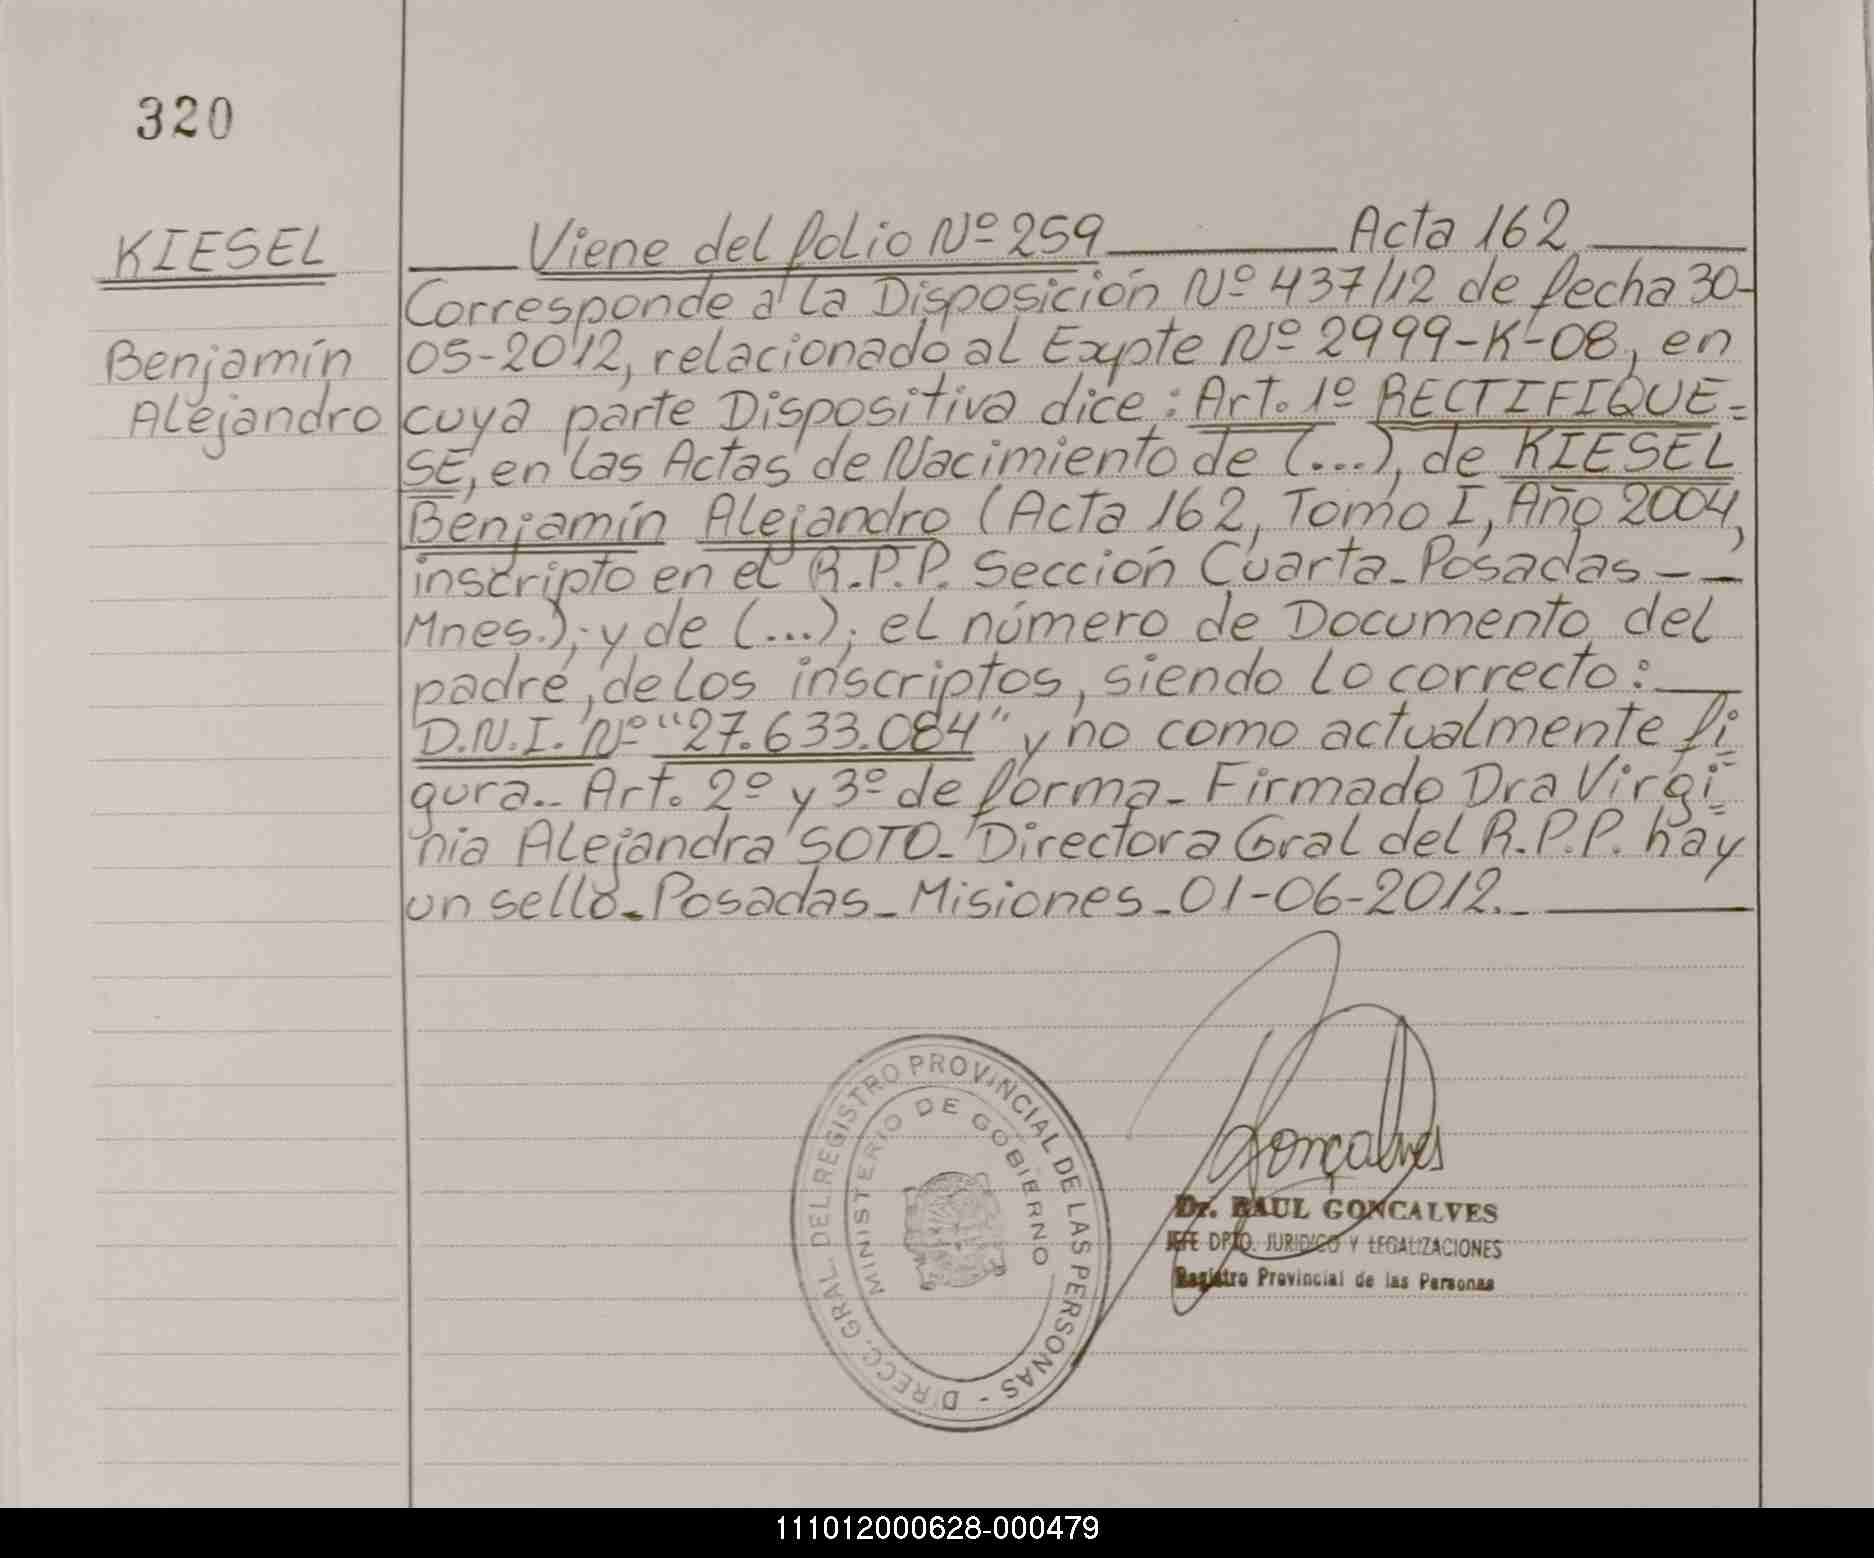 320
KIESEL
Benjamín
Alejandro
Viene del folio Nº 259 Acta 162
Corresponde a la Disposición Nº 437/12 de fecha 30-
05-2012, relacionado al Expte Nº 2999-K-08, en
cuya parte Dispositiva dice: Art. 1º RECTIFIQUE=
SE, en las Actas de Nacimiento de (...), de KIESEL
Benjamín Alejandro (Acta 162, Tomo I, Año 2004,
inscripto en el R.P.P. Sección Cuarta-Posadas--
Mnes.); y de (...); el número de Documento del
padre, de los inscriptos, siendo lo correcto:
D.N.I. Nº "27.633.084" y no como actualmente fi=
gura.- Art. 2º y 3º de forma- Firmado Dra Virgi=
nia Alejandra SOTO- Directora Gral del R.P.P. hay
un sello-Posadas-Misiones-01-06-2012.-
DIRECC. GRAL. DEL REGISTRO PROVINCIAL DE LAS PERSONAS -
MINISTERIO DE GOBIERNO
Gonçalves
Dr. RAUL GONCALVES
JEFE DPTO. JURIDICO Y LEGALIZACIONES
Registro Provincial de las Personas
111012000628-000479